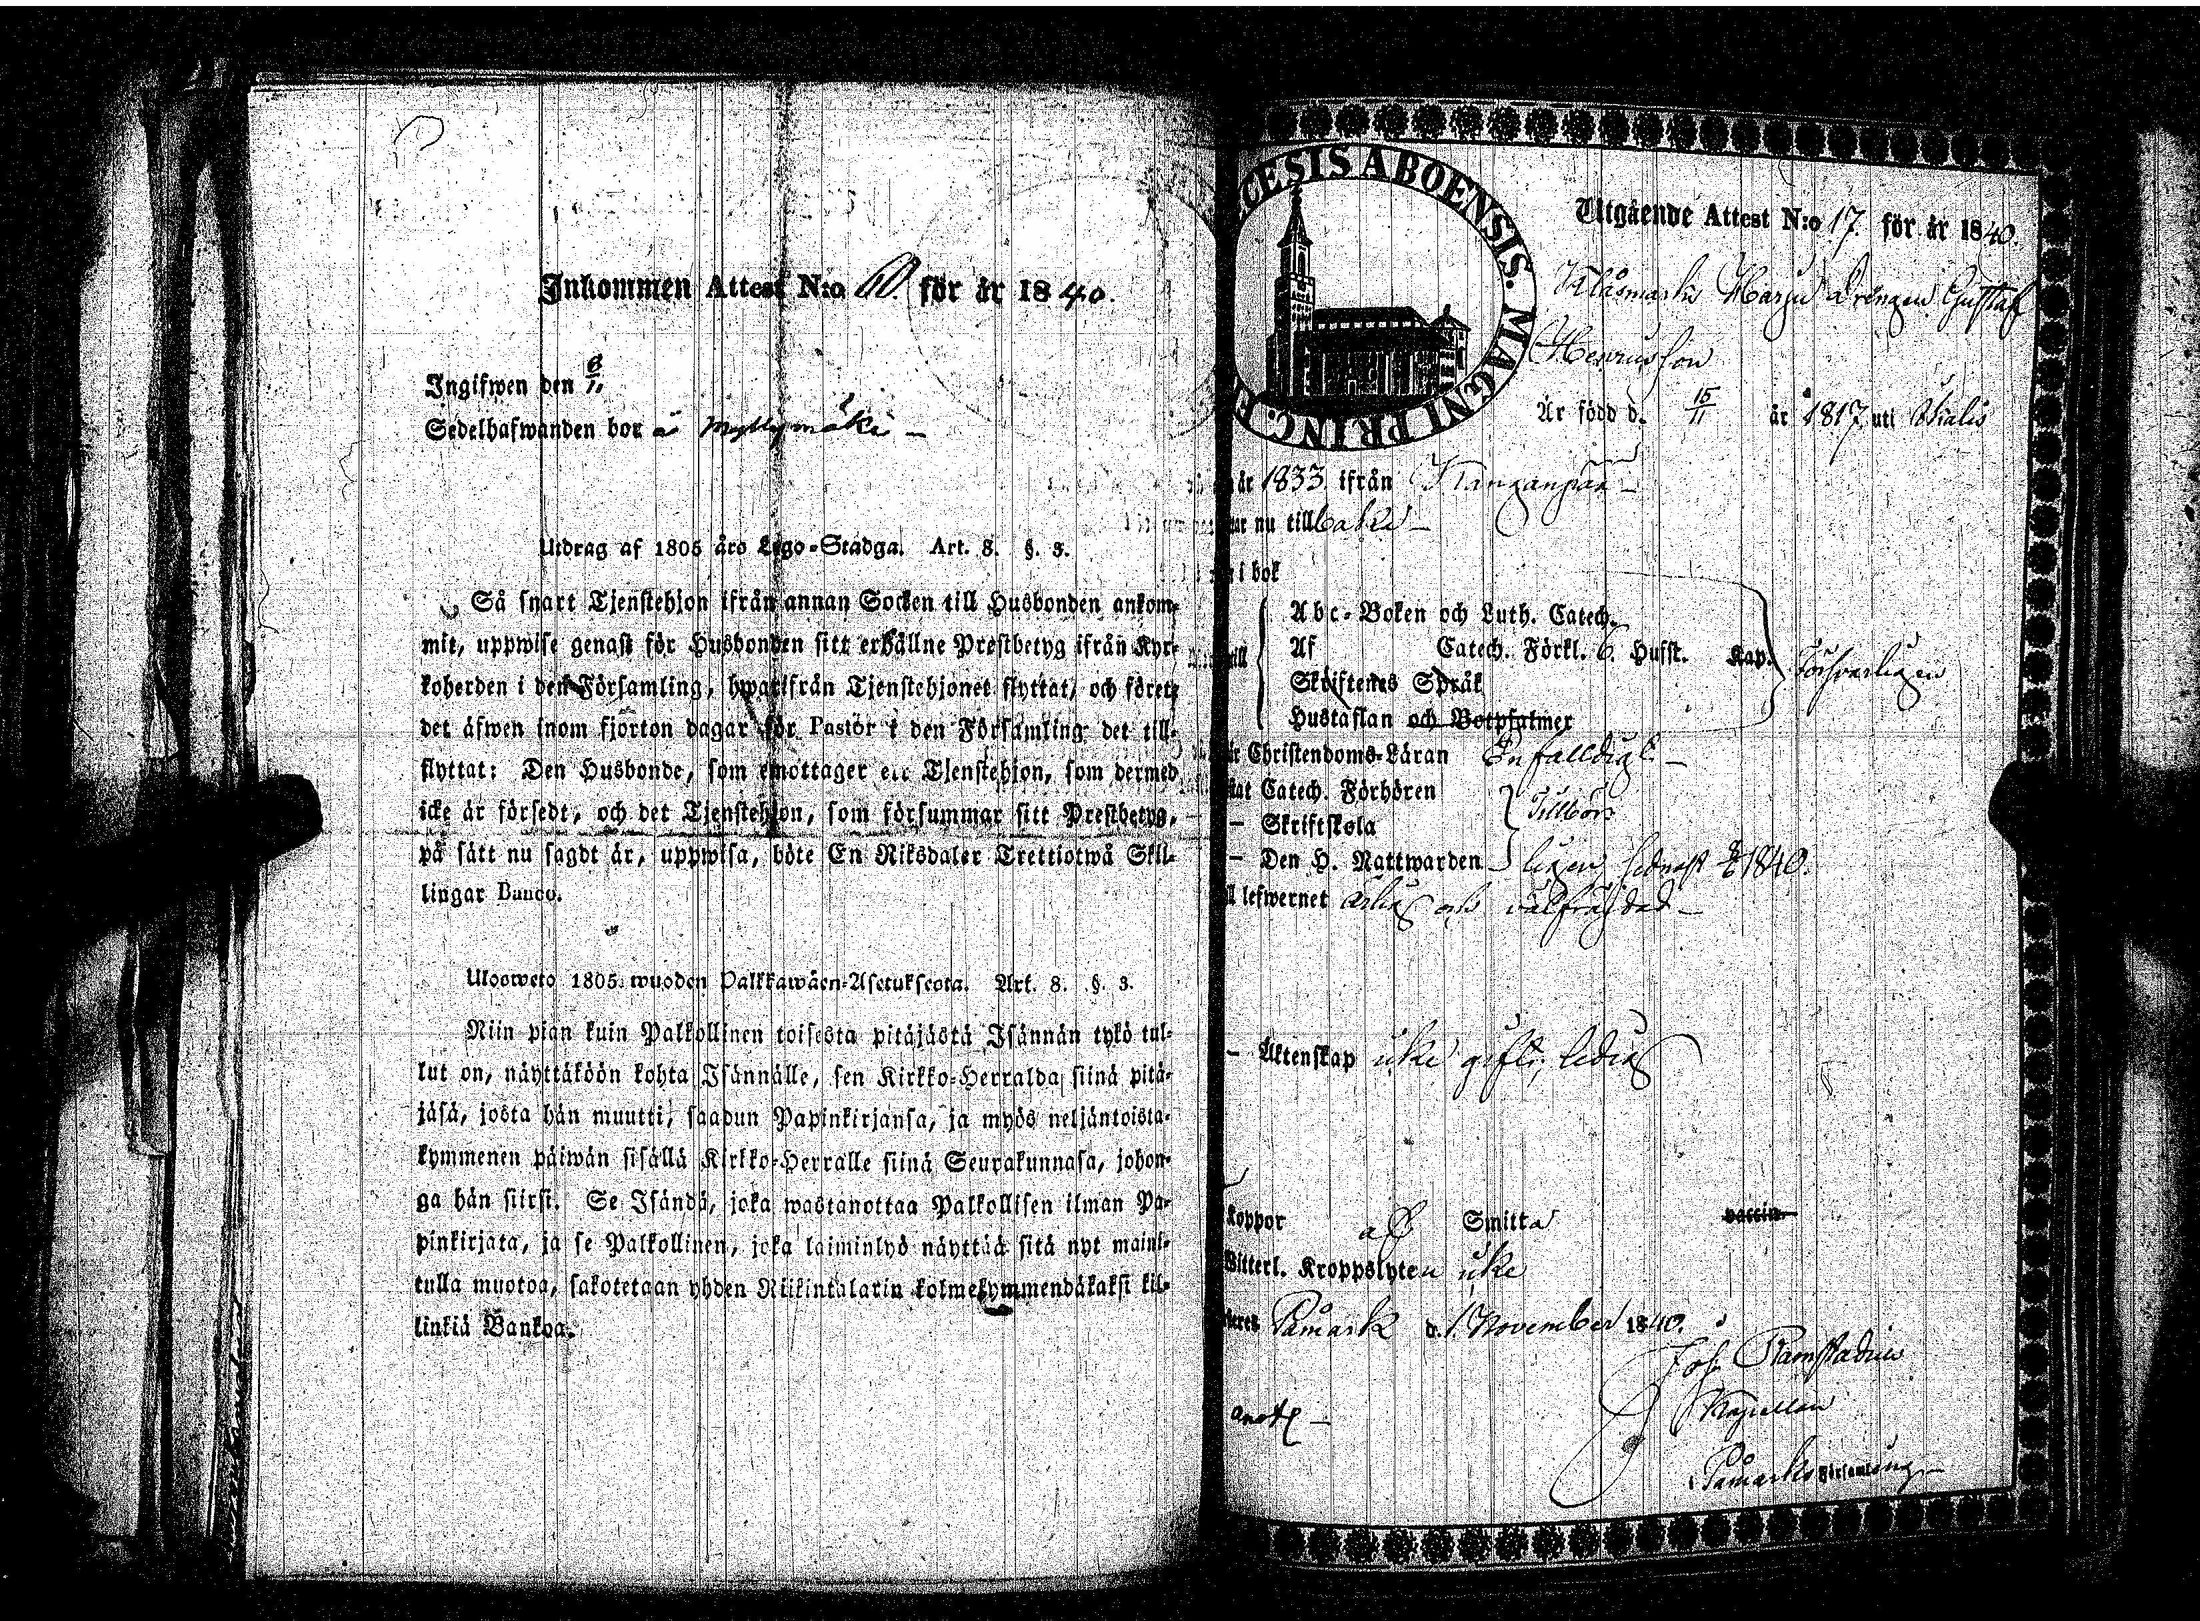 Inkommen Attest N:o 60. för år 1840.
Ingifwen den 6/11
Sedelhafwanden bor å Myllymäki –
Utdrag af 1805 års Lego-Stadga. Art. 8. §. 3.
Så snart Tjenstehjon ifrån annan Socken till Husbonden ankom-
mit, uppwise genast för Husbonden sitt erhållne Prestbetyg ifrån Kyr-
koherden i den Församling, hwarifrån Tjenstehjonet flyttat, och förete
det äfwen inom fjorton dagar för Pastor i den Församling det till-
flyttat: Den Husbonde, som emottager ett Tjenstehjon, som dermed
icke är försedt, och det Tjenstehjon, som försummar sitt Prestbetyg,
på sätt nu sagdt är, uppwisa, böte En Riksdaler Trettiotwå Skil-
lingar Banco.
Ulosweto 1805 wuoden Palkkawäen-Asetuksesta. Art. 8. §. 3.
Niin pian kuin Palkollinen toisesta pitäjästä Isännän tykö tul-
lut on, näyttäköön kohta Isännälle, sen Kirkko-Herralda siinä pitä-
jäsä, josta hän muutti, saadun Papinkirjansa, ja myös neljäntoista-
kymmenen päiwän sisällä Kirkko-Herralle siinä Seurakunnasa, johon-
ga hän siirsi. Se Isändä, joka wastanottaa Palkollisen ilman Pa-
pinkirjata, ja se Palkollinen, joka laiminlyö näyttää sitä nyt maini-
tulla muotoa, sakotetaan yhden Riikintalarin kolmekymmendäkaksi kil-
linkiä Bankoa.
CESIS ABOENSIS. MAGNI PRINC. F
Utgående Attest N:o 17. för år 1840.
Klåsmarks Harju Drängen Gustaf
Henriksson
Är född d. 15/11 år 1817 uti
år 1833 ifrån Kankanpää –
nu tillbaka –
i bok
Abc-Boken och Luth. Catech.
Af Catech. Förkl. 6. Hufst. Kap.
Skriftenes Språk
Hustaflan och Botpsalmer
Försvarligen
Christendoms-Läran Enfaldigt –
Catech. Förhören
– Skriftskola
Tillbör-
– Den H. Nattwarden ligen, sednast 1840.
lefwernet ärlig och välfräjdad –
– Äktenskap icke gift, ledig
koppor af Smitta vaccin.
Witterl. Kroppslyten icke
Påmark d. 1 November 1840.
Joh. Ramstadius
Kapellan
Påmarks Församling –